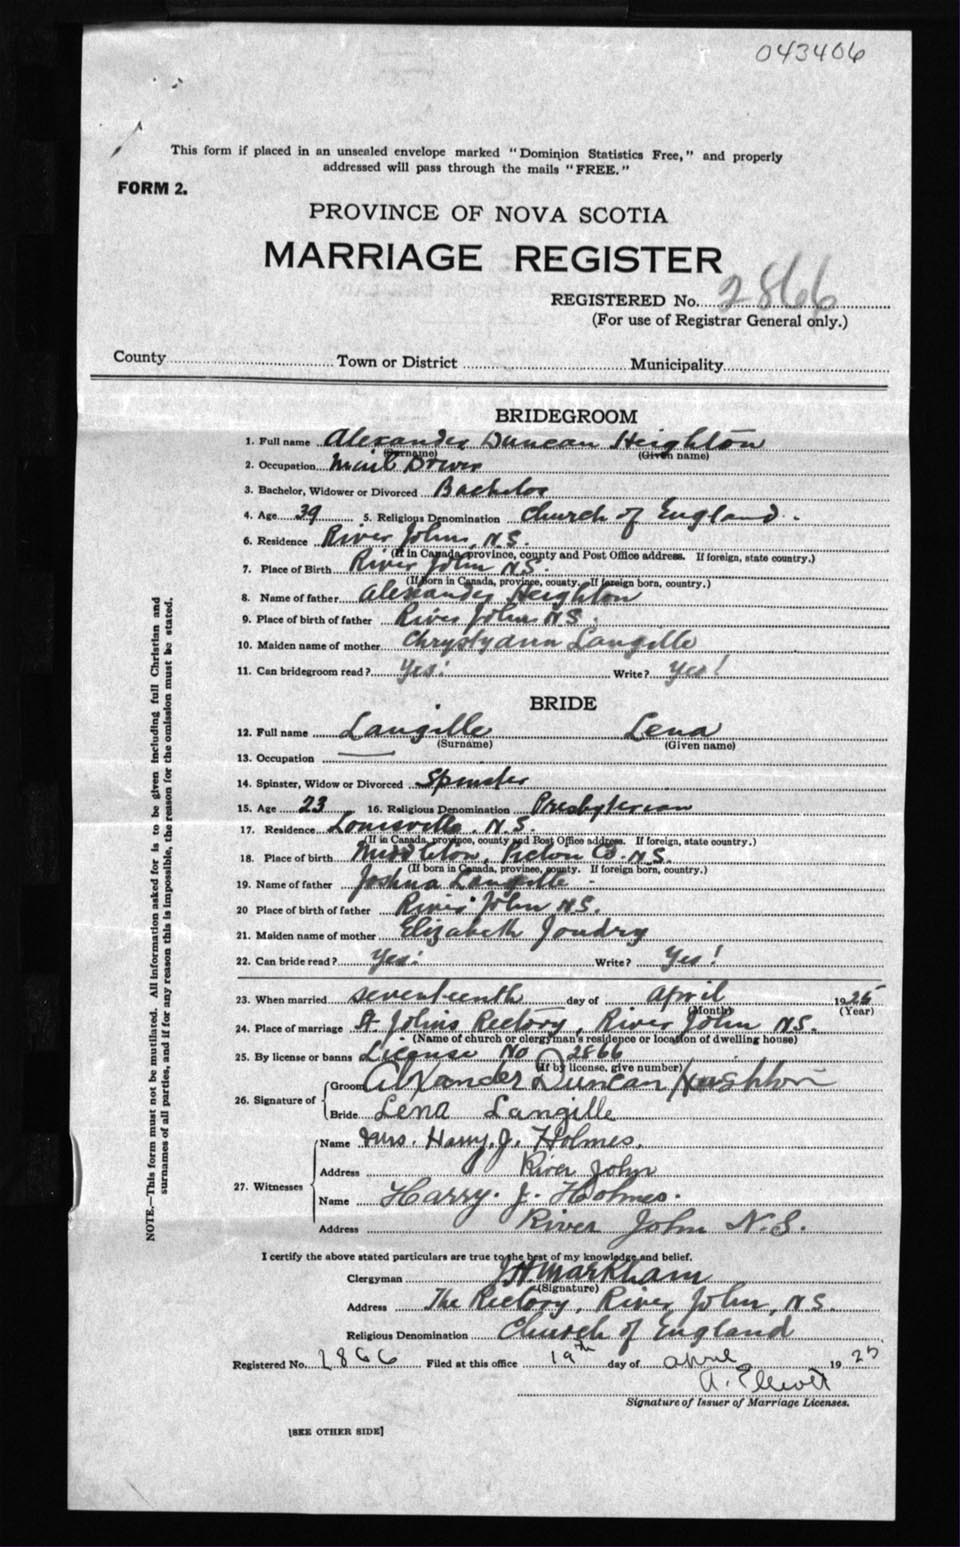 043406
This form if placed in an unsealed envelope marked "Dominion Statistics Free," and properly
addressed will pass through the mails "FREE."
FORM 2.
PROVINCE OF NOVA SCOTIA
MARRIAGE REGISTER
REGISTERED No. 2866
(For use of Registrar General only.)
County Town or District Municipality
BRIDEGROOM
1. Full name Alexander Duncan Heighton
(Surname) (Given name)
2. Occupation Mail Driver
3. Bachelor, Widower or Divorced Bachelor
4. Age 39 5. Religious Denomination Church of England.
6. Residence River John, N.S.
(If in Canada, province, county and Post Office address. If foreign, state country.)
7. Place of Birth River John N.S.
(If born in Canada, province, county. If foreign born, country.)
8. Name of father Alexander Heighton
9. Place of birth of father River John N.S.
10. Maiden name of mother Chrystyann Langille
11. Can bridegroom read? Yes! Write? Yes!
BRIDE
12. Full name Langille Lena
(Surname) (Given name)
13. Occupation —
14. Spinster, Widow or Divorced Spinster
15. Age 23 16. Religious Denomination Presbyterian
17. Residence Louisville. N.S.
(If in Canada, province, county and Post Office address. If foreign, state country.)
18. Place of birth Middleton, Pictou Co. N.S.
(If born in Canada, province, county. If foreign born, country.)
19. Name of father Joshua Langille
20 Place of birth of father River John N.S.
21. Maiden name of mother Elizabeth Joudry
22. Can bride read? Yes! Write? Yes!
23. When married seventeenth day of April 1925
(Month) (Year)
24. Place of marriage St. John's Rectory, River John N.S.
(Name of church or clergyman's residence or location of dwelling house)
25. By license or banns License No 2866
(If by license, give number)
26. Signature of Groom Alexander Duncan Heighton
Bride Lena Langille
27. Witnesses Name Mrs. Harry. J. Holmes.
Address River John
Name Harry. J. Holmes.
Address River John N.S.
I certify the above stated particulars are true to the best of my knowledge and belief.
Clergyman J H Markham
(Signature)
Address The Rectory, River John, N.S.
Religious Denomination Church of England
Registered No. 2866 Filed at this office 19th day of April 1925
A. Elliott
Signature of Issuer of Marriage Licenses.
[SEE OTHER SIDE]
NOTE.—This form must not be mutilated. All information asked for is to be given including full Christian and
surnames of all parties, and if for any reason this is impossible, the reason for the omission must be stated.